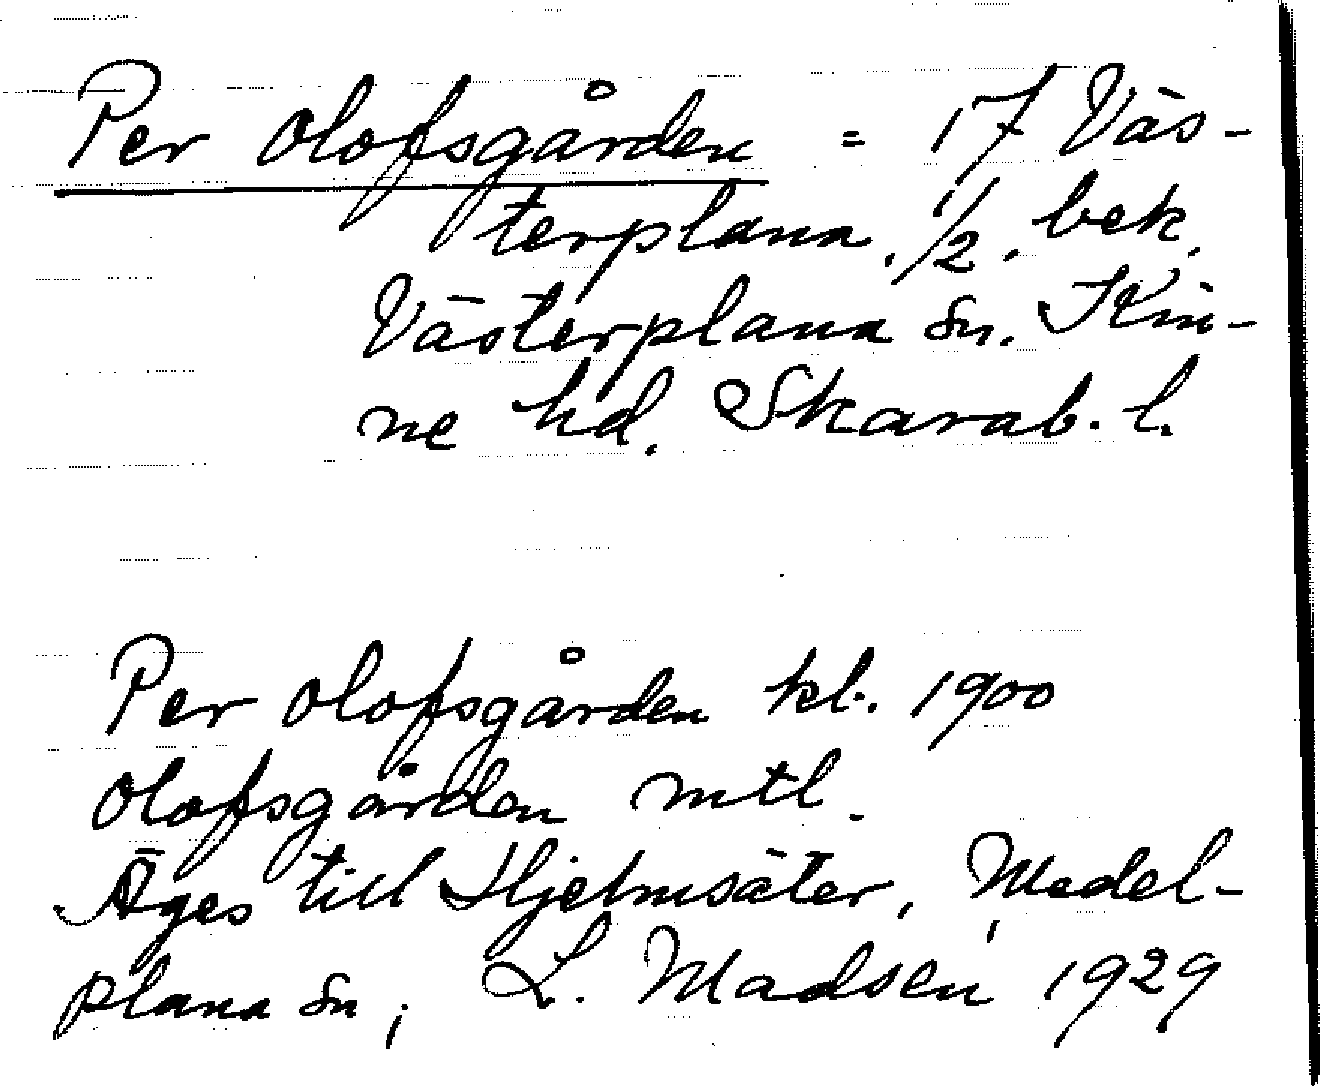 Per Olofsgården = 17 Väs-
terplana. 1/2, bek.
Västerplana sn. Kin-
ne hd. Skarab. l.
Per Olofsgården kl. 1900
Olofsgården mtl.
Äges till Hjelmsäter, Medel-
plana sn; L. Madsen 1929